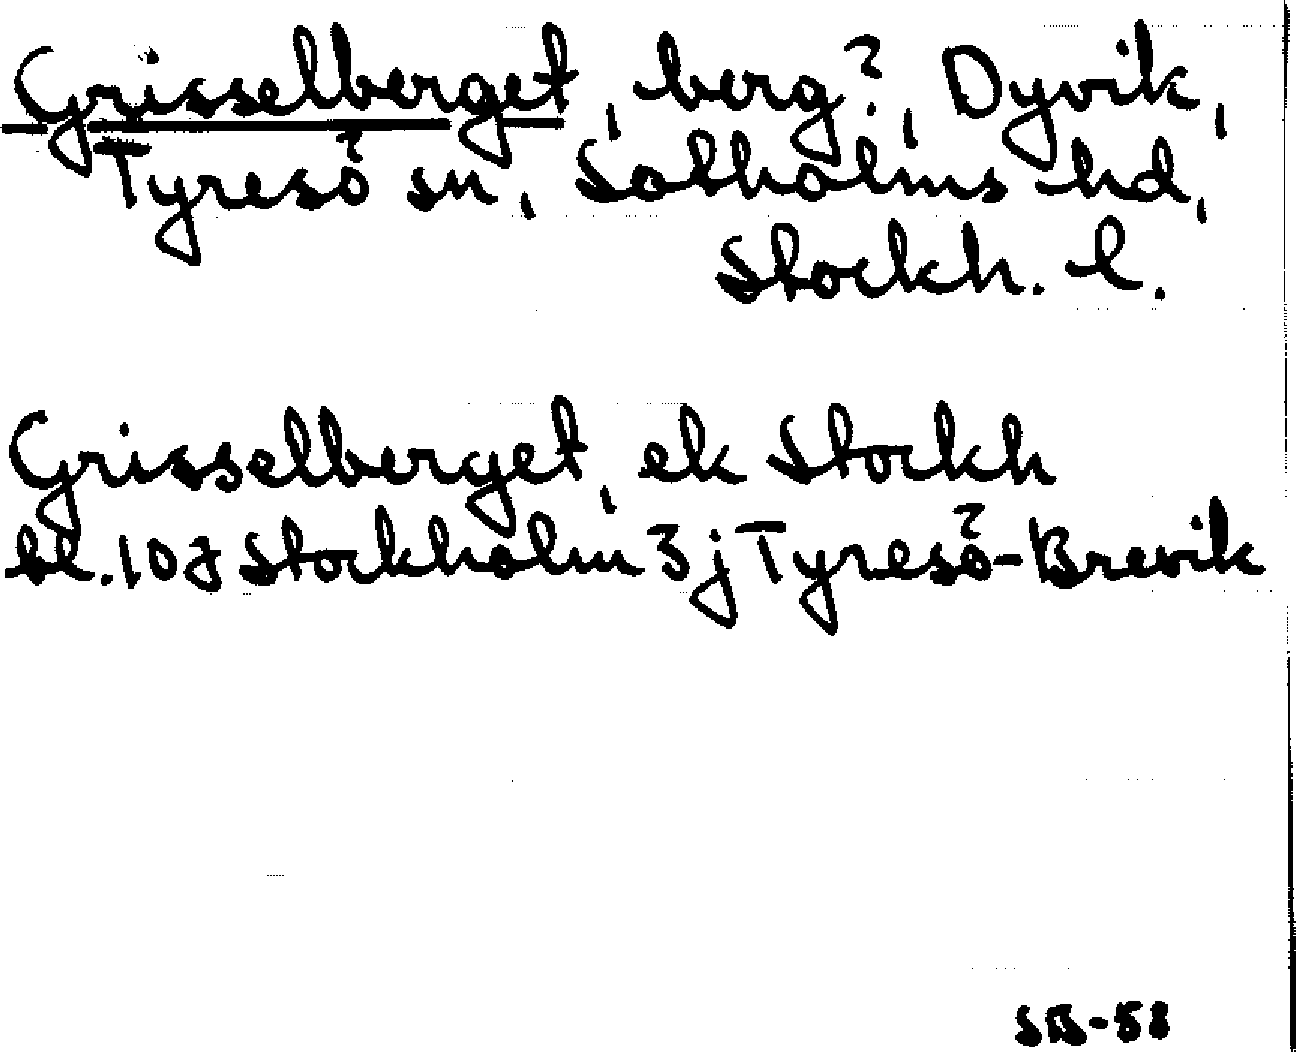 Grisselberget, berg?, Dyvik,
Tyresö sn, Sotholms hd,
Stockh. l.
Grisselberget, ek Stockh
bl. 107 Stockholm 3j Tyresö-Brevik
SB-58